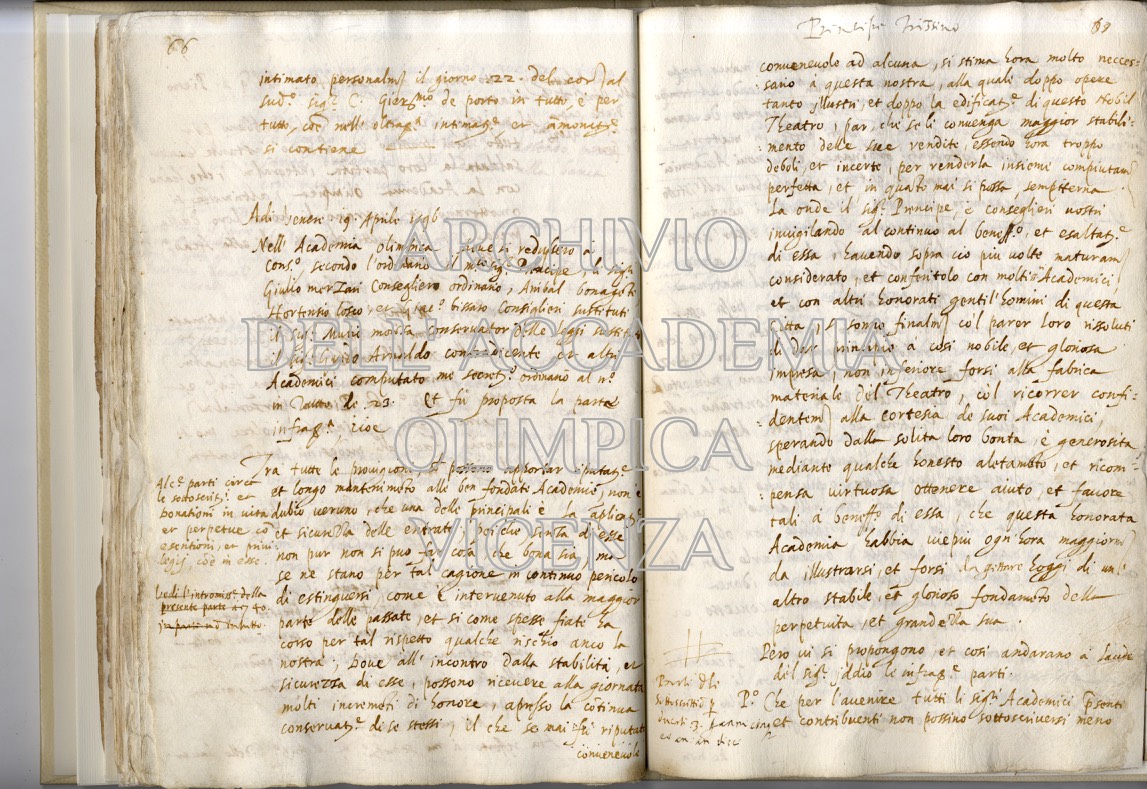 66
intimato personalm^te il giorno 22. del cor^te al
sud.^o sig.^r C. Gier^mo de porto in tutto, e per
tutto, coe nell' oltras^ta intimat.^e et amonit.^e
si contiene
Adi Venere 19. Aprile 1596
Nell' Academia olimpica, dove si redussero i
Cons.^ri secondo l'ordinario il sig.^r Principe, il sig.^r
Giulio merzari Consegliero ordinario, Anibal bonagente
Hortensio losco, et bissaro Consiglieri sustituti
il sig.^r Mutio Conservator delle leggi
il sig.^r Guido Arnaldo contradicente et altri
Academici computato me secret.^o ordinario al n.^o
in tutto de 23. Et fu proposta la parte
infras.^ta, cioe
Tra tutte le provigioni, che possono apportar riputat.^e
et longo mantenimeto alle ben fondate Academie, non è
dubio veruno, che una delle principali è la
et sicurezza delle entrate, poiche senza di esse
non pur non si può far cosa, che bona sia, ma
se ne stano per tal cagione in continuo pericolo
di estinguersi, come è intervenuto alla maggior
parte delle passate, et si come spesse fiate ha
corso per tal rispetto qualche rischio anco la
nostra, Dove all' incontro dalla stabilità, et
sicurezza di esse, possono ricevere alla giornata
molti incremeti di honore, apresso la cotinua
conservat.^e di se stessi, il che se mai fu riputato
convenevole
Alc.^e parti circa
le sottoscrit.^i et
donationi in vita
et perpetue co
esentioni, et privi
legij coe in esse.
Vedi l'intromiss.^e della
presente parte a 40.
Principe Trissino
69
convenevole ad alcuna, si stima hora molto neces-
sario à questa nostra, alla quali doppo opere
tanto illustri, et doppo la edificat.^e di questo Nobil
Theatro, par, che se li convenga maggior stabili-
mento delle sue vendite, essendo hora troppo
deboli, et incerte, per renderla insieme compiutam^te
perfetta, et in quato mai si possa, sempiterna
La onde il sig.^r Principe, è conseglieri nostri
invigilando al continuo al benef.^o, et esaltat.^e
di essa, havendo sopra ciò più volte maturam^te
considerato, et conferitolo con molti Academici,
et con altri honorati gentil'homini di questa
Città, si sonno finalm^te co'l parer loro rissoluti
di dar principio a così nobile, et gloriosa
impresa, non inferiore forsi alla fabrica
materiale del Theatro, co'l ricorrer confi-
dentem^te alla cortesia de suoi Academici,
sperando dalla solita loro bontà, è generosità
mediante qualche honesto aletamento, et ricom-
pensa virtuosa ottenere aiuto, et favore
tali à benef.^o di essa, che questa honorata
Academia habbia viepiù ogn'hora maggiorm^te
da illustrarsi, et forsi da gittare hoggi di un'
altro stabile, et glorioso fondameto della
perpetuità, et grandezza sua.
Però vi si propongono, et così andarano à laude
del sig.^r Iddio le infras.^te parti.
P.^o Che per l'avenire tutti li sig.^ri Academici p̃senti
et contribuenti non possino sottoscriversi meno
ducati 3.
ARCHIVIO
DELL'ACCADEMIA
OLIMPICA
VICENZA